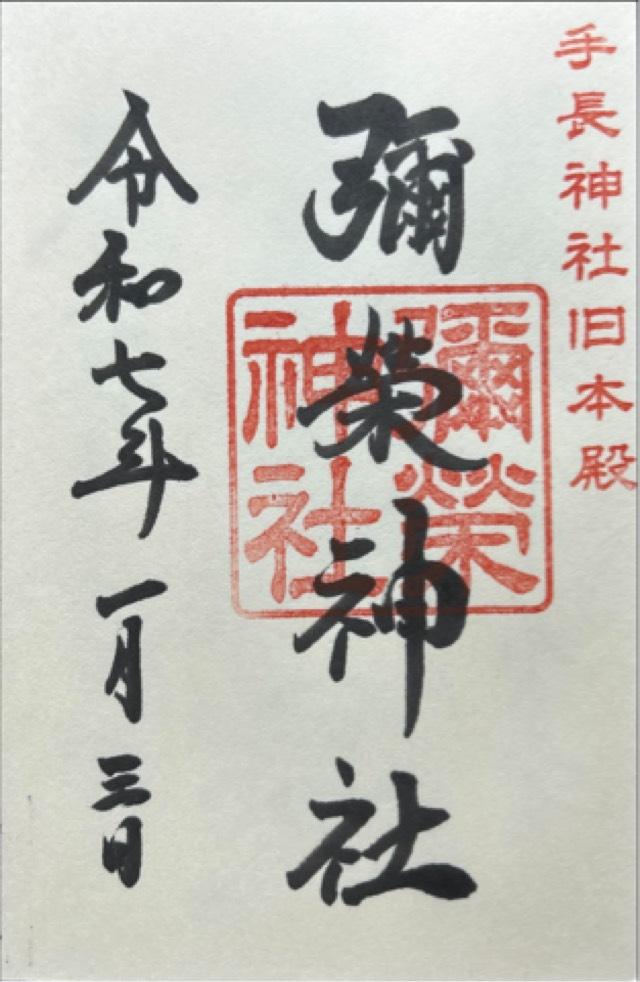 手長神社旧本殿
彌榮神社
彌榮
神社
令和七年
一月三日